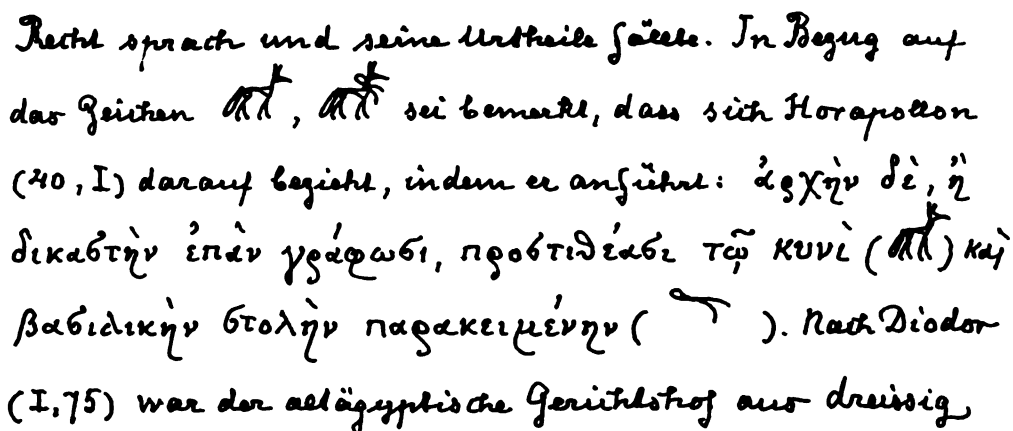 Recht sprach und seine Urtheile fällte. In Bezug auf
das Zeichen 𓃥, sei bemerkt, dass sich Horapollon
(40, I) darauf bezieht, indem er anführt: ἀρχὴν δὲ, ἢ
δικαστὴν ἐπὰν γράφωσι, προστιθέασι τῷ κυνὶ ( ) καὶ
βασιλικὴν στολὴν παρακειμένην ( ). Nach Diodor
(I, 75) war der altägyptische Gerichtshof aus dreissig